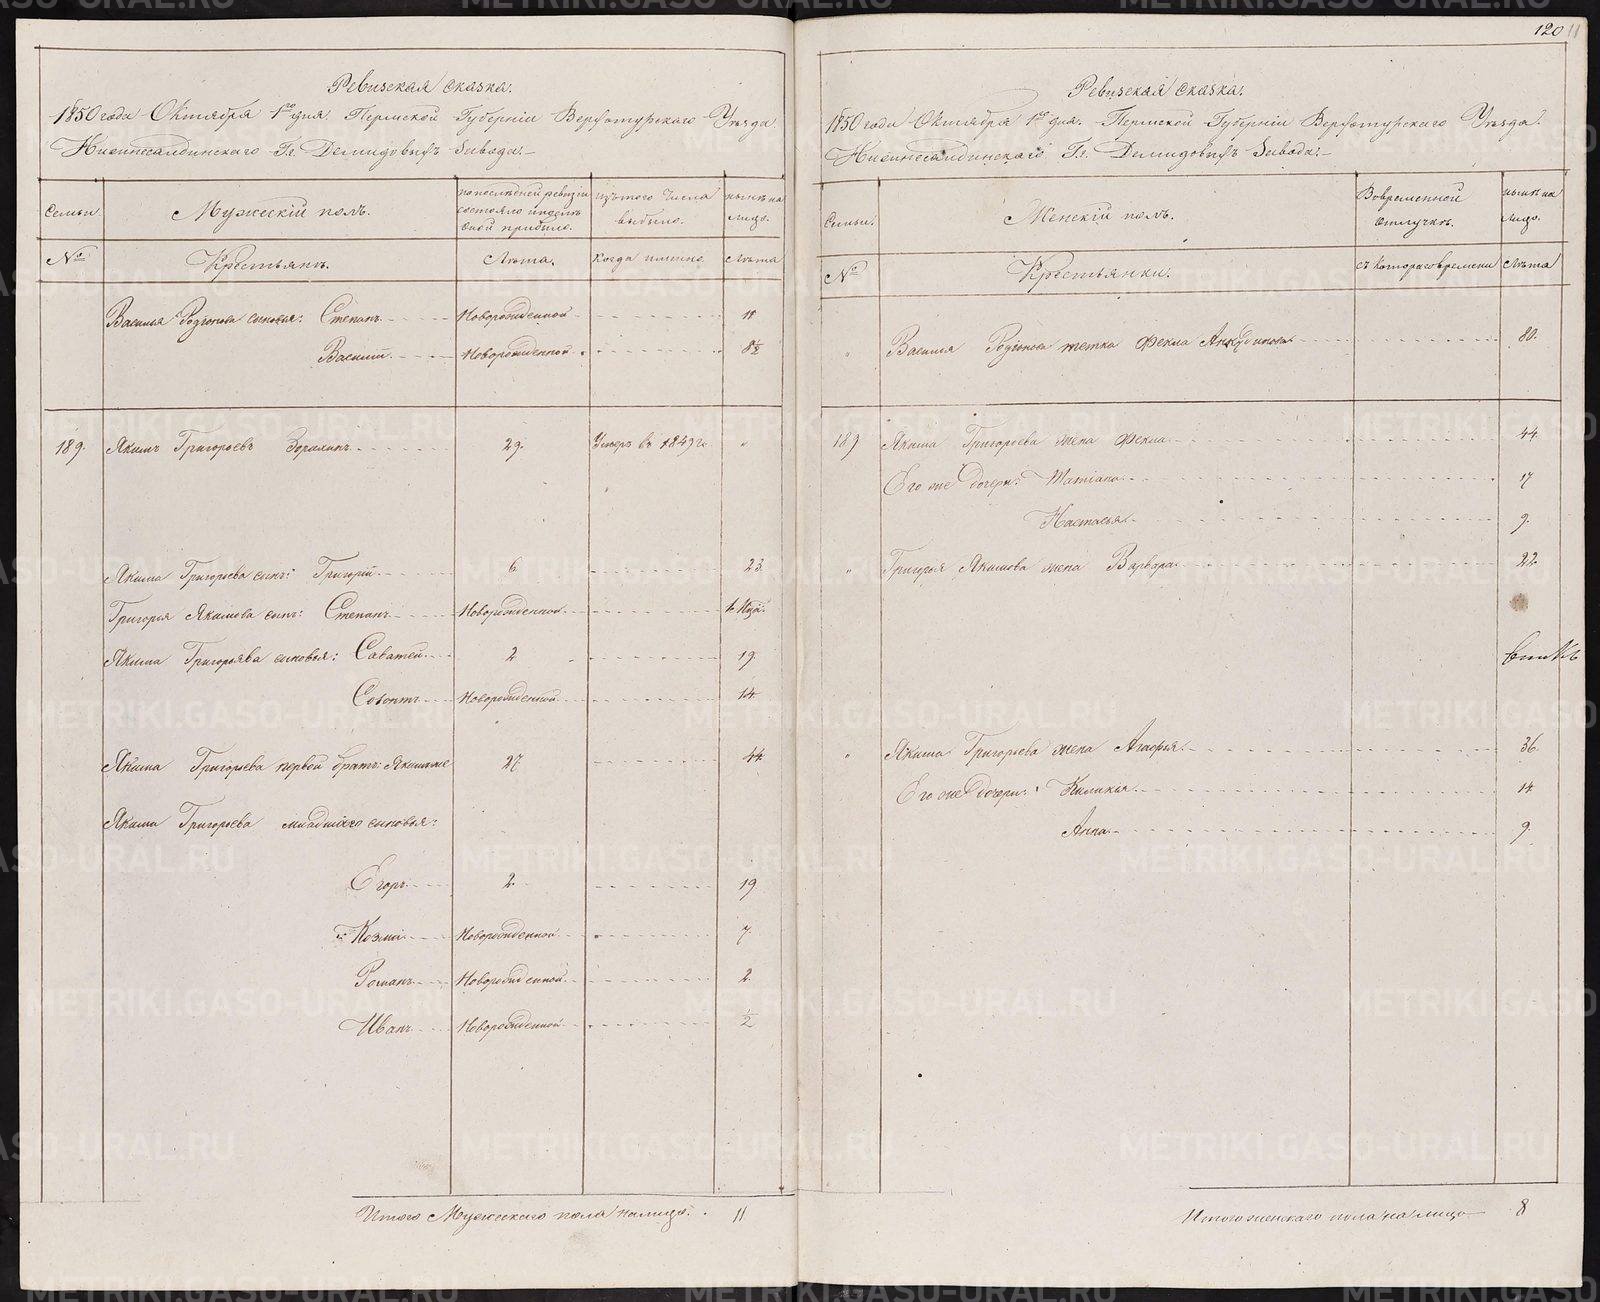 Ревизская сказка.
1850 года Октября 1го дня Пермской Губерніи Верхотурскаго Уѣзда
Нижнесалдинскаго Гг. Демидовыхъ Завода.
Семьи.
Мужескій полъ.
по последней ревизіи состояло и после оной прибыло.
изъ того числа выбыло.
ныне на лицо.
№
Крестьянъ.
Лѣта.
Когда именно.
Лѣта
Василья Родіонова сыновья: Степанъ Новорожденной 11
Василій Новорожденной 8½
189. Якимъ Григорьевъ 29. Умеръ въ 1849 г. "
Якима Григорьева сынъ: Григорій 6 23.
Григорья Якимова сынъ: Степанъ Новорожденной
Якима Григорьева сыновья: Саватей 2 19
Созонтъ Новорожденной 14
Якима Григорьева первой братъ: Якимъ же 27 44
Якима Григорьева младшаго сыновья:
Егоръ 2. 19
Козма Новорожденной 7.
Романъ Новорожденной 2
Иванъ Новорожденной ½
Итого Мужескаго пола налицо. 11
120
11
Ревизская сказка.
1850 года Октября 1го дня. Пермской Губерніи Верхотурскаго Уѣзда.
Нижнесалдинскаго Гг. Демидовыхъ Завода.
Семьи.
Женскій полъ.
Во временной отлучкѣ.
ныне на лицо.
№
Крестьянки.
съ котораго времени
Лѣта
" Василья Родіонова тетка Фекла Анкудинова 80.
189 Якима Григорьева жена Фекла 44.
Его же дочери: Матіана 17
Настасья 9.
" Григорья Якимова жена Варвара 22
" Якима Григорьева жена Агафья 36
Его же дочери: Киликея 14
Анна 9.
Итого женскаго пола на лицо 8
METRIKI.GASO-URAL.RU